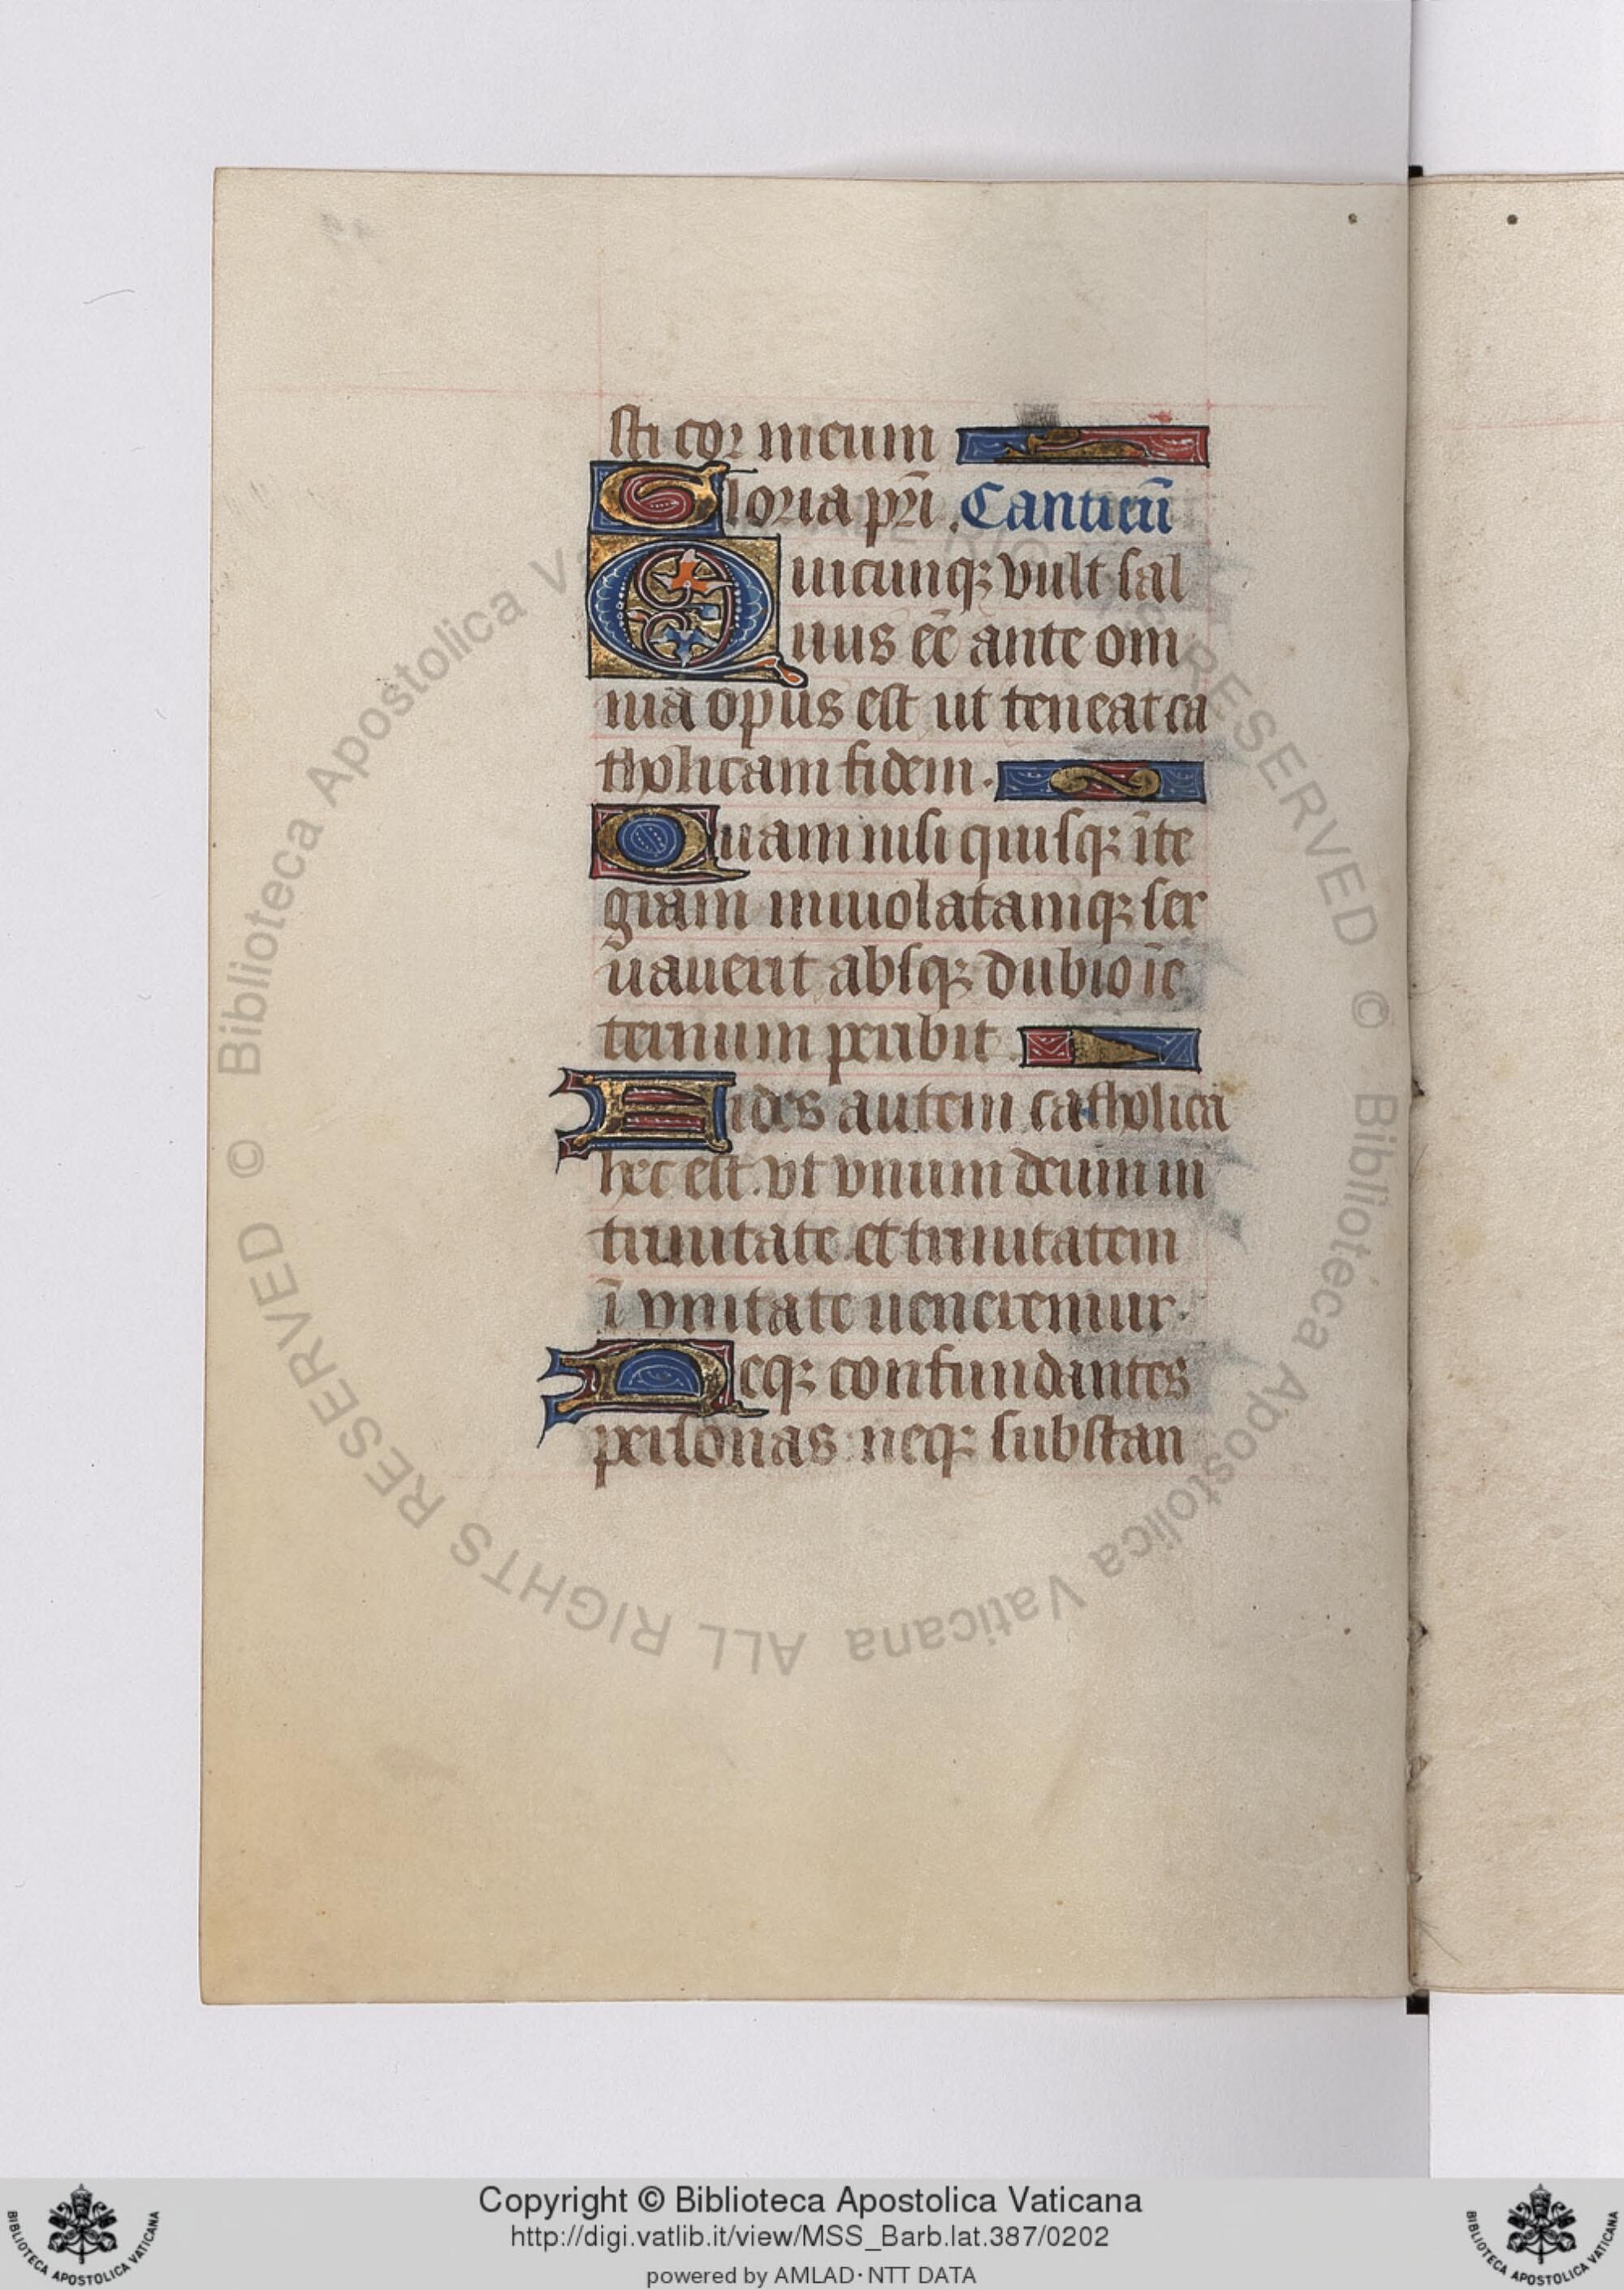 sti cor meum
Gloria pr̄i. Canticū
Quicunqꝫ vult sal
uus eē ante om
nia opus est ut teneat ca
tholicam fidem.
Quam nisi quisqꝫ īte
gram inuiolatamqꝫ ser
uauerit absqꝫ dubio ī e
ternum peribit.
Fides autem catholica
hec est. vt vnum deum in
trinitate et trinitatem
ī vnitate ueneremur.
Neqꝫ confundantes
personas neqꝫ substan
© Biblioteca Apostolica Vaticana ALL RIGHTS RESERVED
© Biblioteca Apostolica Vaticana ALL RIGHTS RESERVED
Copyright © Biblioteca Apostolica Vaticana
http://digi.vatlib.it/view/MSS_Barb.lat.387/0202
powered by AMLAD·NTT DATA
BIBLIOTECA APOSTOLICA VATICANA
BIBLIOTECA APOSTOLICA VATICANA